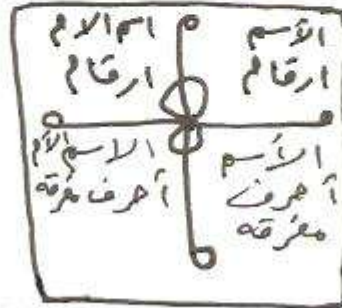 الأسم
ارقام
اسم الام
ارقام
الأسم
أحرف
مفرقه
الاسم الأم
أحرف مفرقه